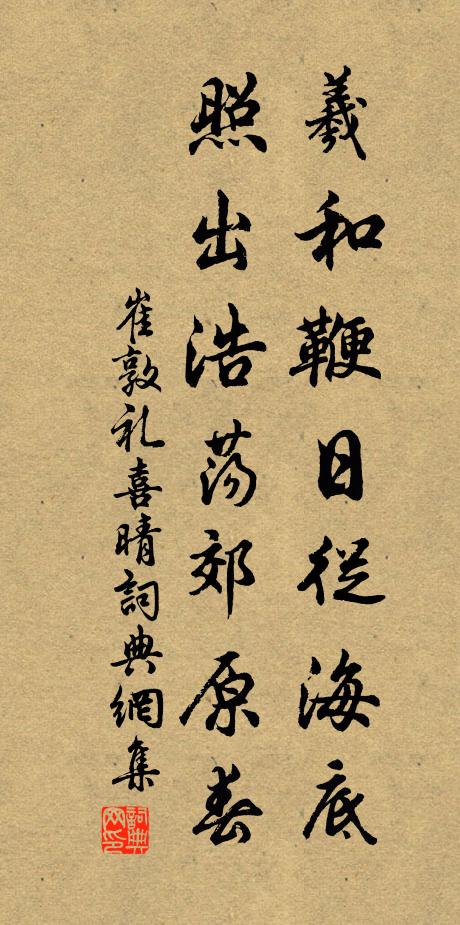 羲和鞭日從海底
照出浩荡郊原春
崔敦礼喜晴詞典網集
詞典网印